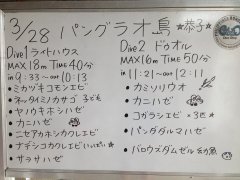 3/28 パングラオ島 ☆恭子☆
Dive1 ライトハウス
MAX18m TIME40分
in 9:33 → out 10:13
・ミカヅキコモンエビ
・ヤノウキホシハゼ
・カニハゼ
・ニセアカホシカクレエビ
・サラサハゼ
Dive2 ドゥオル
MAX16m TIME50分
in 11:21 → out 12:11
・カミソリウオ
・カニハゼ
・コガラシエビ ×3匹☆
・パンダダルマハゼ
・バロウズダムゼル